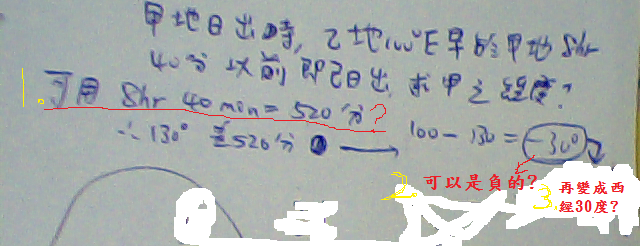 甲地日出時, 乙地100°E早於甲地8hr
40分以前即已日出, 求甲之經度?
1. 可用 8hr 40min = 520分?
∴ 130° 差520分 → 100 - 130 = -30°
2. 可以是負的?
3. 再變成西
經30度?